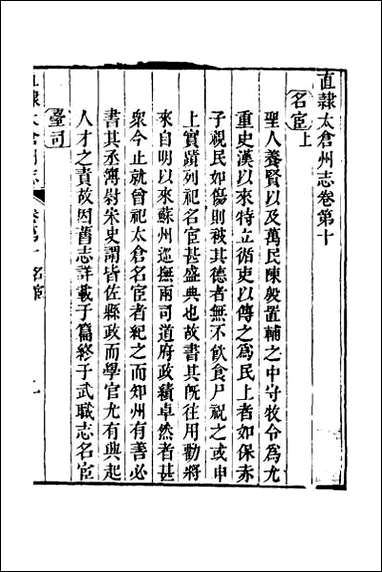 直隸太倉州志卷第十
名宦上
聖人養賢以及萬民陳殷置輔之中守牧令爲尤
重史漢以來特立循吏以傳之爲民上者如保赤
子視民如傷則被其德者無不飲食尸祝之或申
上實蹟列祀名宦甚盛典也故書其旣往用勸將
來自明以來蘇州巡撫兩司道府政績卓然者甚
衆今止就曾祀太倉名宦者紀之而知州有善必
書其丞簿尉朱史謂皆佐縣政而學官尤有興起
人才之責故因舊志詳載于篇終于武職志名宦
臺司
直隸太倉州志
卷第十 名宦